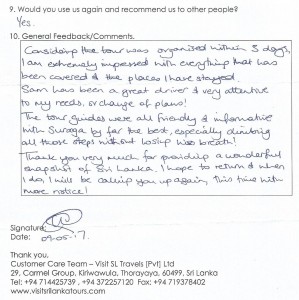 9. Would you use us again and recommend us to other people?
Yes.
10. General Feedback/Comments.
Considering the tour was organised within 3 days,
I am extremely impressed with everything that has
been covered & the places I have stayed.
Sam has been a great driver & very attentive
to my needs, or change of plans!
The tour guides were all friendly & informative
with Suraga by far the best, especially climbing
all those steps without losing his breath!
Thank you very much for providing a wonderful
snapshot of Sri Lanka. I hope to return & when
I do, I will be calling you up again, this time with
more notice!
Signature:
Date: 09.05.17.
Thank you.
Customer Care Team – Visit SL Travels (Pvt) Ltd
29, Carmel Group, Kiriwawula, Thorayaya, 60499, Sri Lanka
Tel: +94 714425739 , +94 372257120 Fax: +94 719378402
www.visitsrilankatours.com